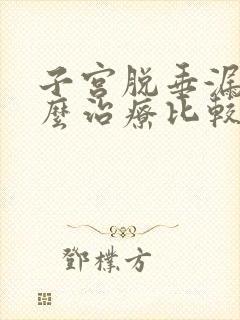 子宫脱垂漏
麼治療比較
鄧樸方